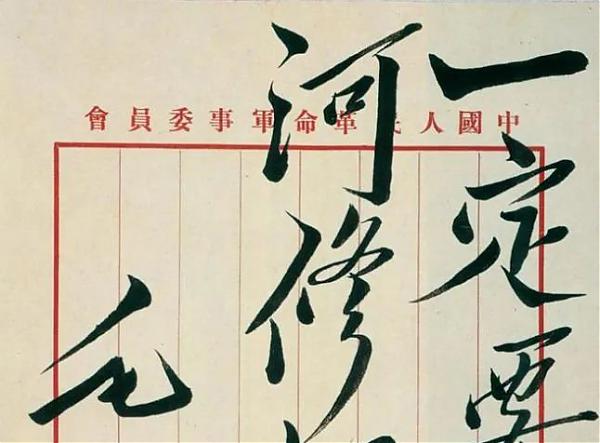 中國人民革命軍事委員會
一定要
河修
毛